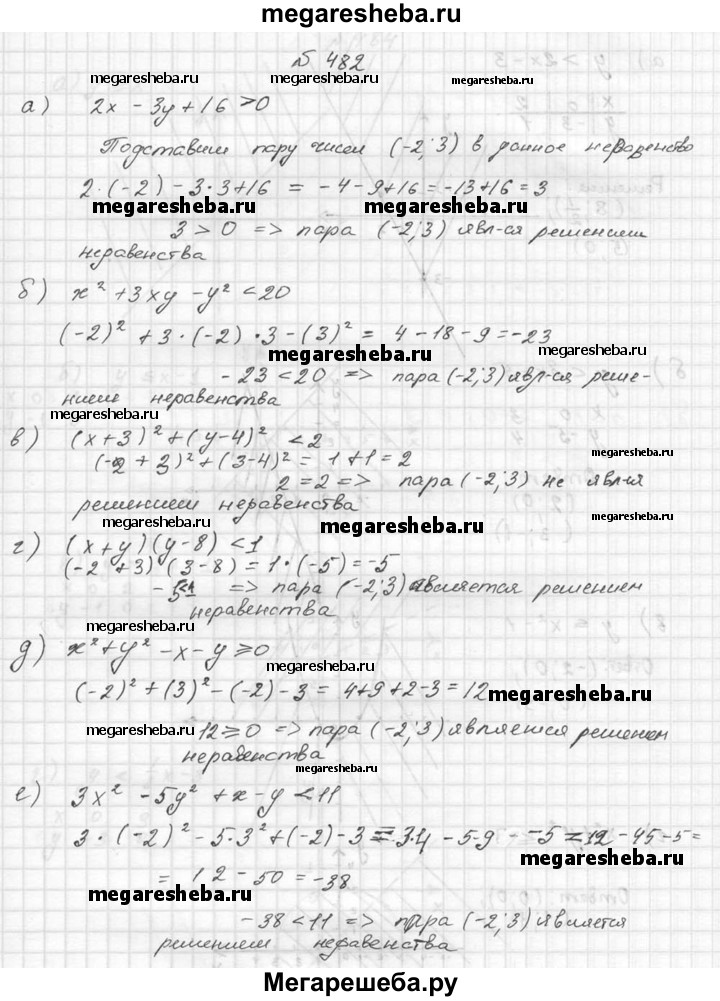 megaresheba.ru
№ 482
megaresheba.ru megaresheba.ru megaresheba.ru
а) 2x - 3y + 16 > 0
Подставим пару чисел (-2; 3) в данное неравенство
2·(-2) - 3·3 + 16 = -4 - 9 + 16 = -13 + 16 = 3
megaresheba.ru megaresheba.ru
3 > 0 => пара (-2; 3) явл-ся решением
неравенства
б) x² + 3xy - y² < 20
(-2)² + 3·(-2)·3 - (3)² = 4 - 18 - 9 = -23
megaresheba.ru megaresheba.ru
-23 < 20 => пара (-2; 3) явл-ся реше-
нием неравенства
megaresheba.ru
в) (x+3)² + (y-4)² < 2
(-2 + 3)² + (3-4)² = 1 + 1 = 2
megaresheba.ru
2 = 2 => пара (-2; 3) не явл-я
решением неравенства
megaresheba.ru megaresheba.ru megaresheba.ru
г) (x+y)(y-8) < 1
(-2 + 3)(3-8) = 1·(-5) = -5
-5<1 => пара (-2; 3) является решением
неравенства
megaresheba.ru
д) x² + y² - x - y ≥ 0
megaresheba.ru
(-2)² + (3)² - (-2) - 3 = 4+9+2-3 = 12
megaresheba.ru
megaresheba.ru
12 ≥ 0 => пара (-2; 3) является решением
неравенства
megaresheba.ru
е) 3x² - 5y² + x - y < 11
3·(-2)² - 5·3² + (-2) - 3 = 3·4 - 5·9 - 5 = 12 - 45 - 5 =
megaresheba.ru
= 12 - 50 = -38
megaresheba.ru
-38 < 11 => пара (-2; 3) является
решением неравенства
Мегарешеба.ру